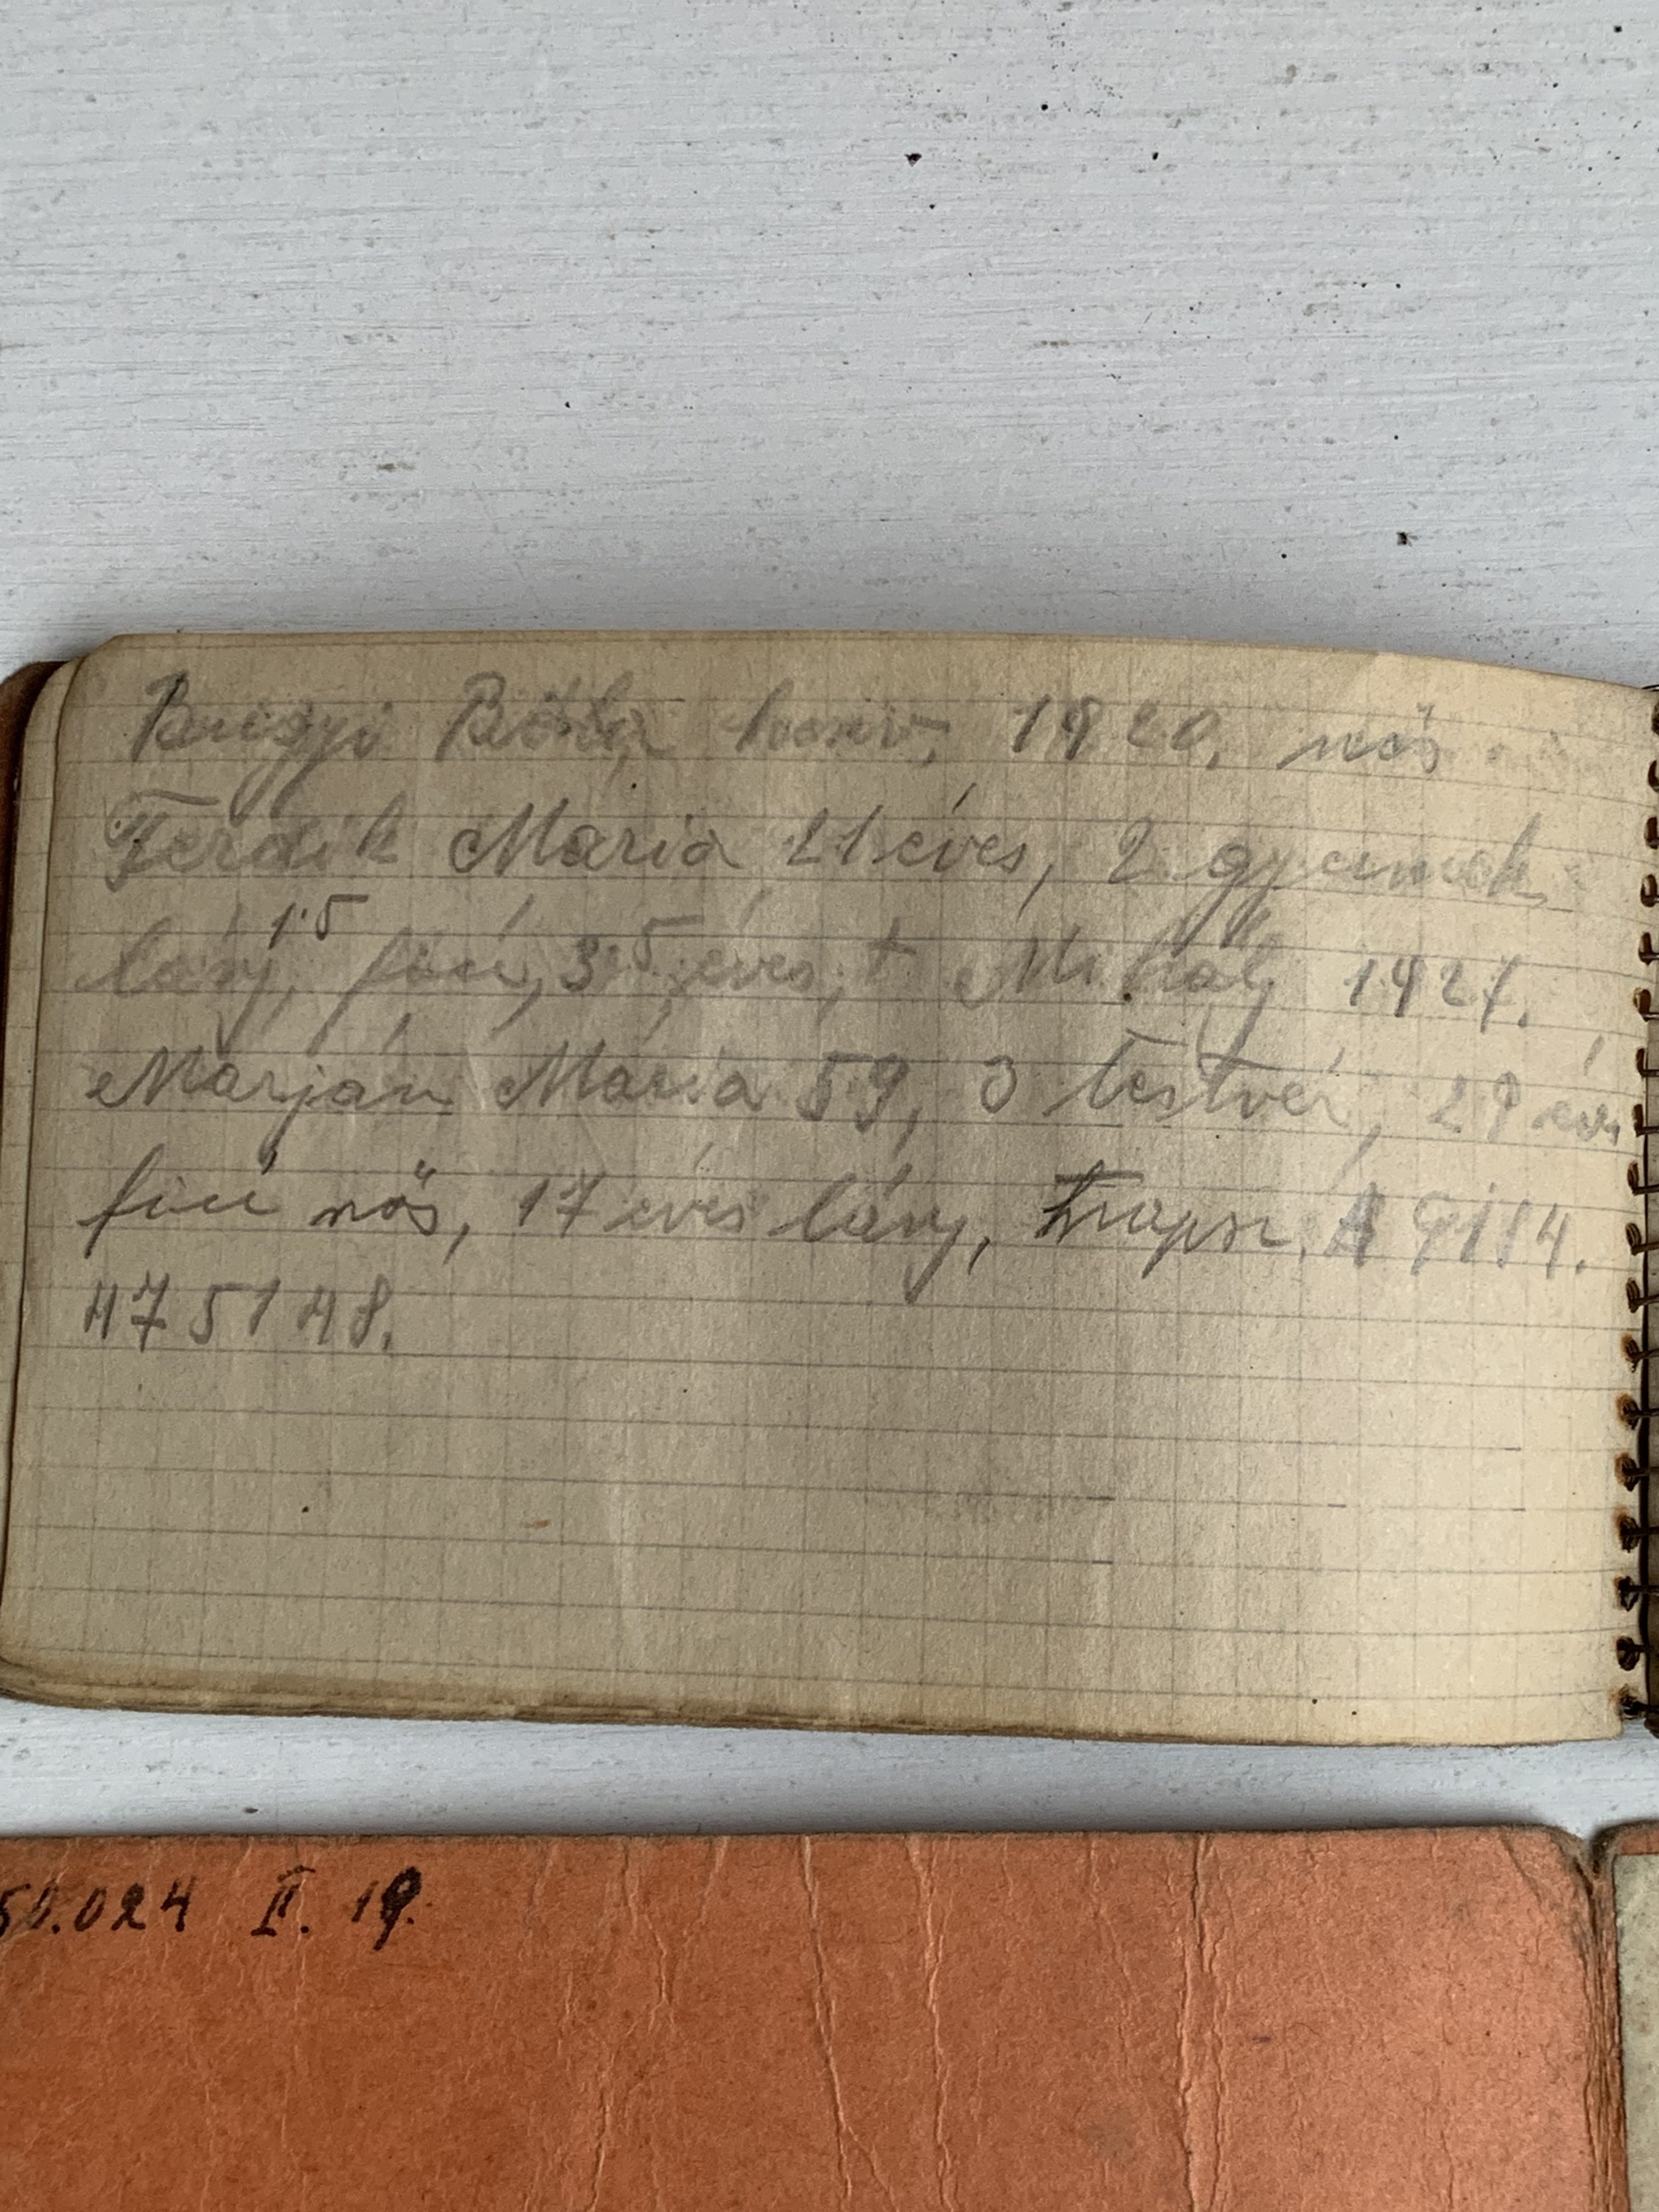 Bugyi Béla honv. 1920. nős
Ferdik Mária 21 éves, 2 gyermek
lány, 1.5 fiú, 3.5 éves, † Mihály 1927.
Marján Mária 59, 3 testvér, 28 éves
fiú nős, 17 éves lány,
475148.
50.024 II. 19.